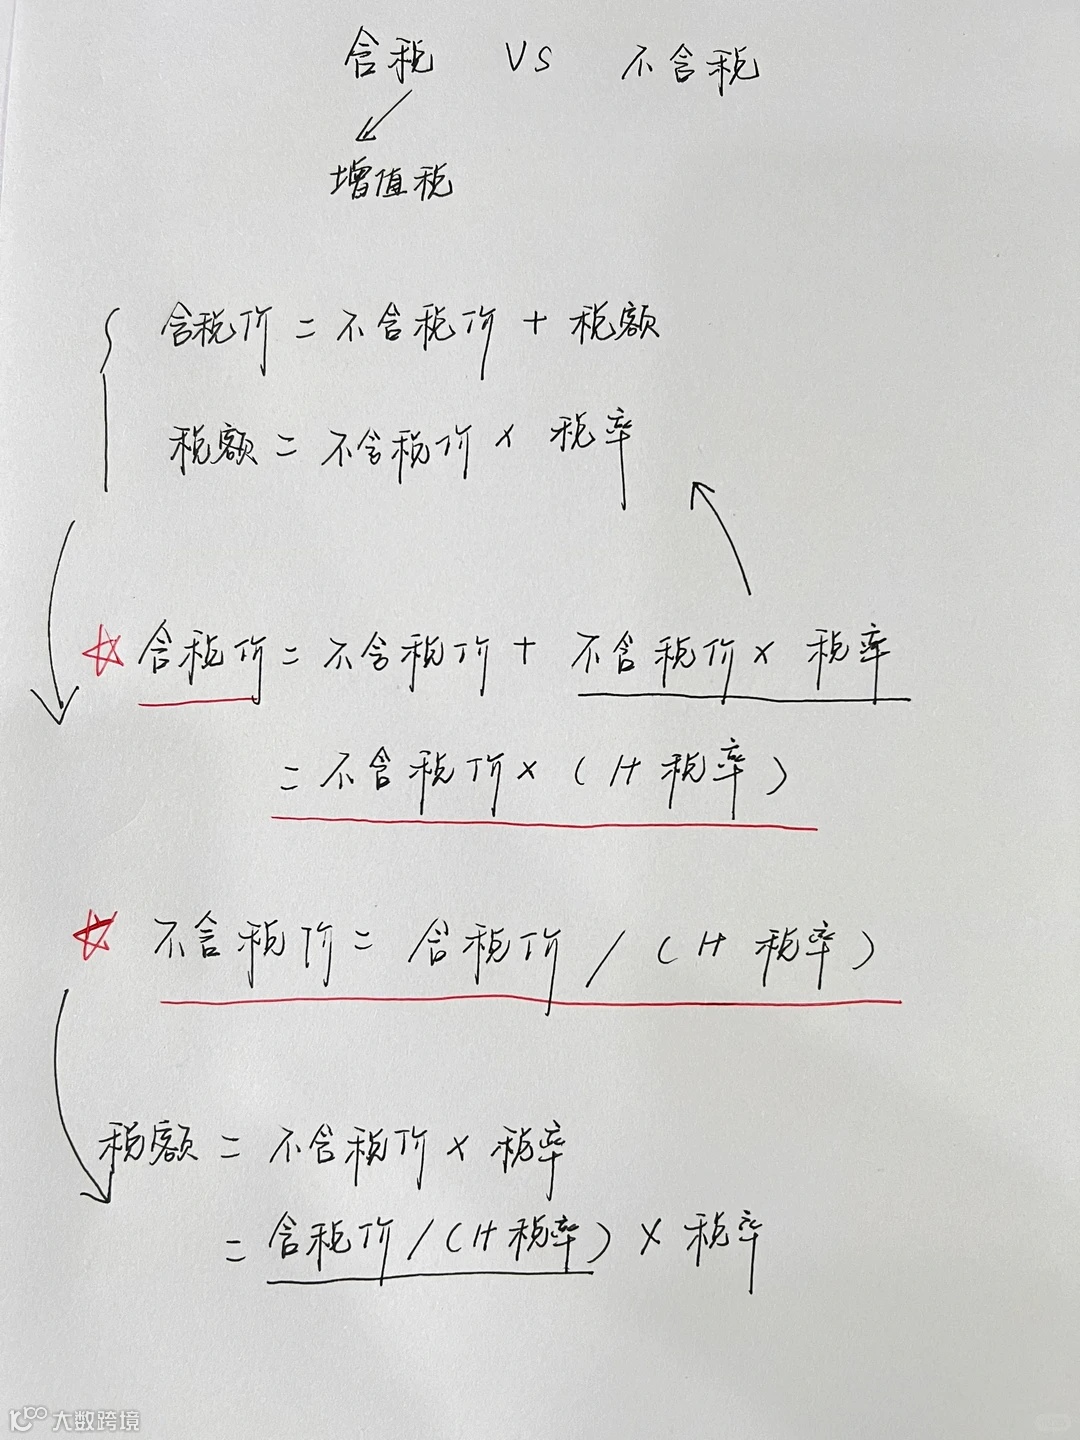 含税 VS 不含税
增值税
含税价 = 不含税价 + 税额
税额 = 不含税价 × 税率
☆ 含税价 = 不含税价 + 不含税价 × 税率
= 不含税价 × (1+税率)
☆ 不含税价 = 含税价 / (1+税率)
税额 = 不含税价 × 税率
= 含税价 / (1+税率) × 税率
大数跨境